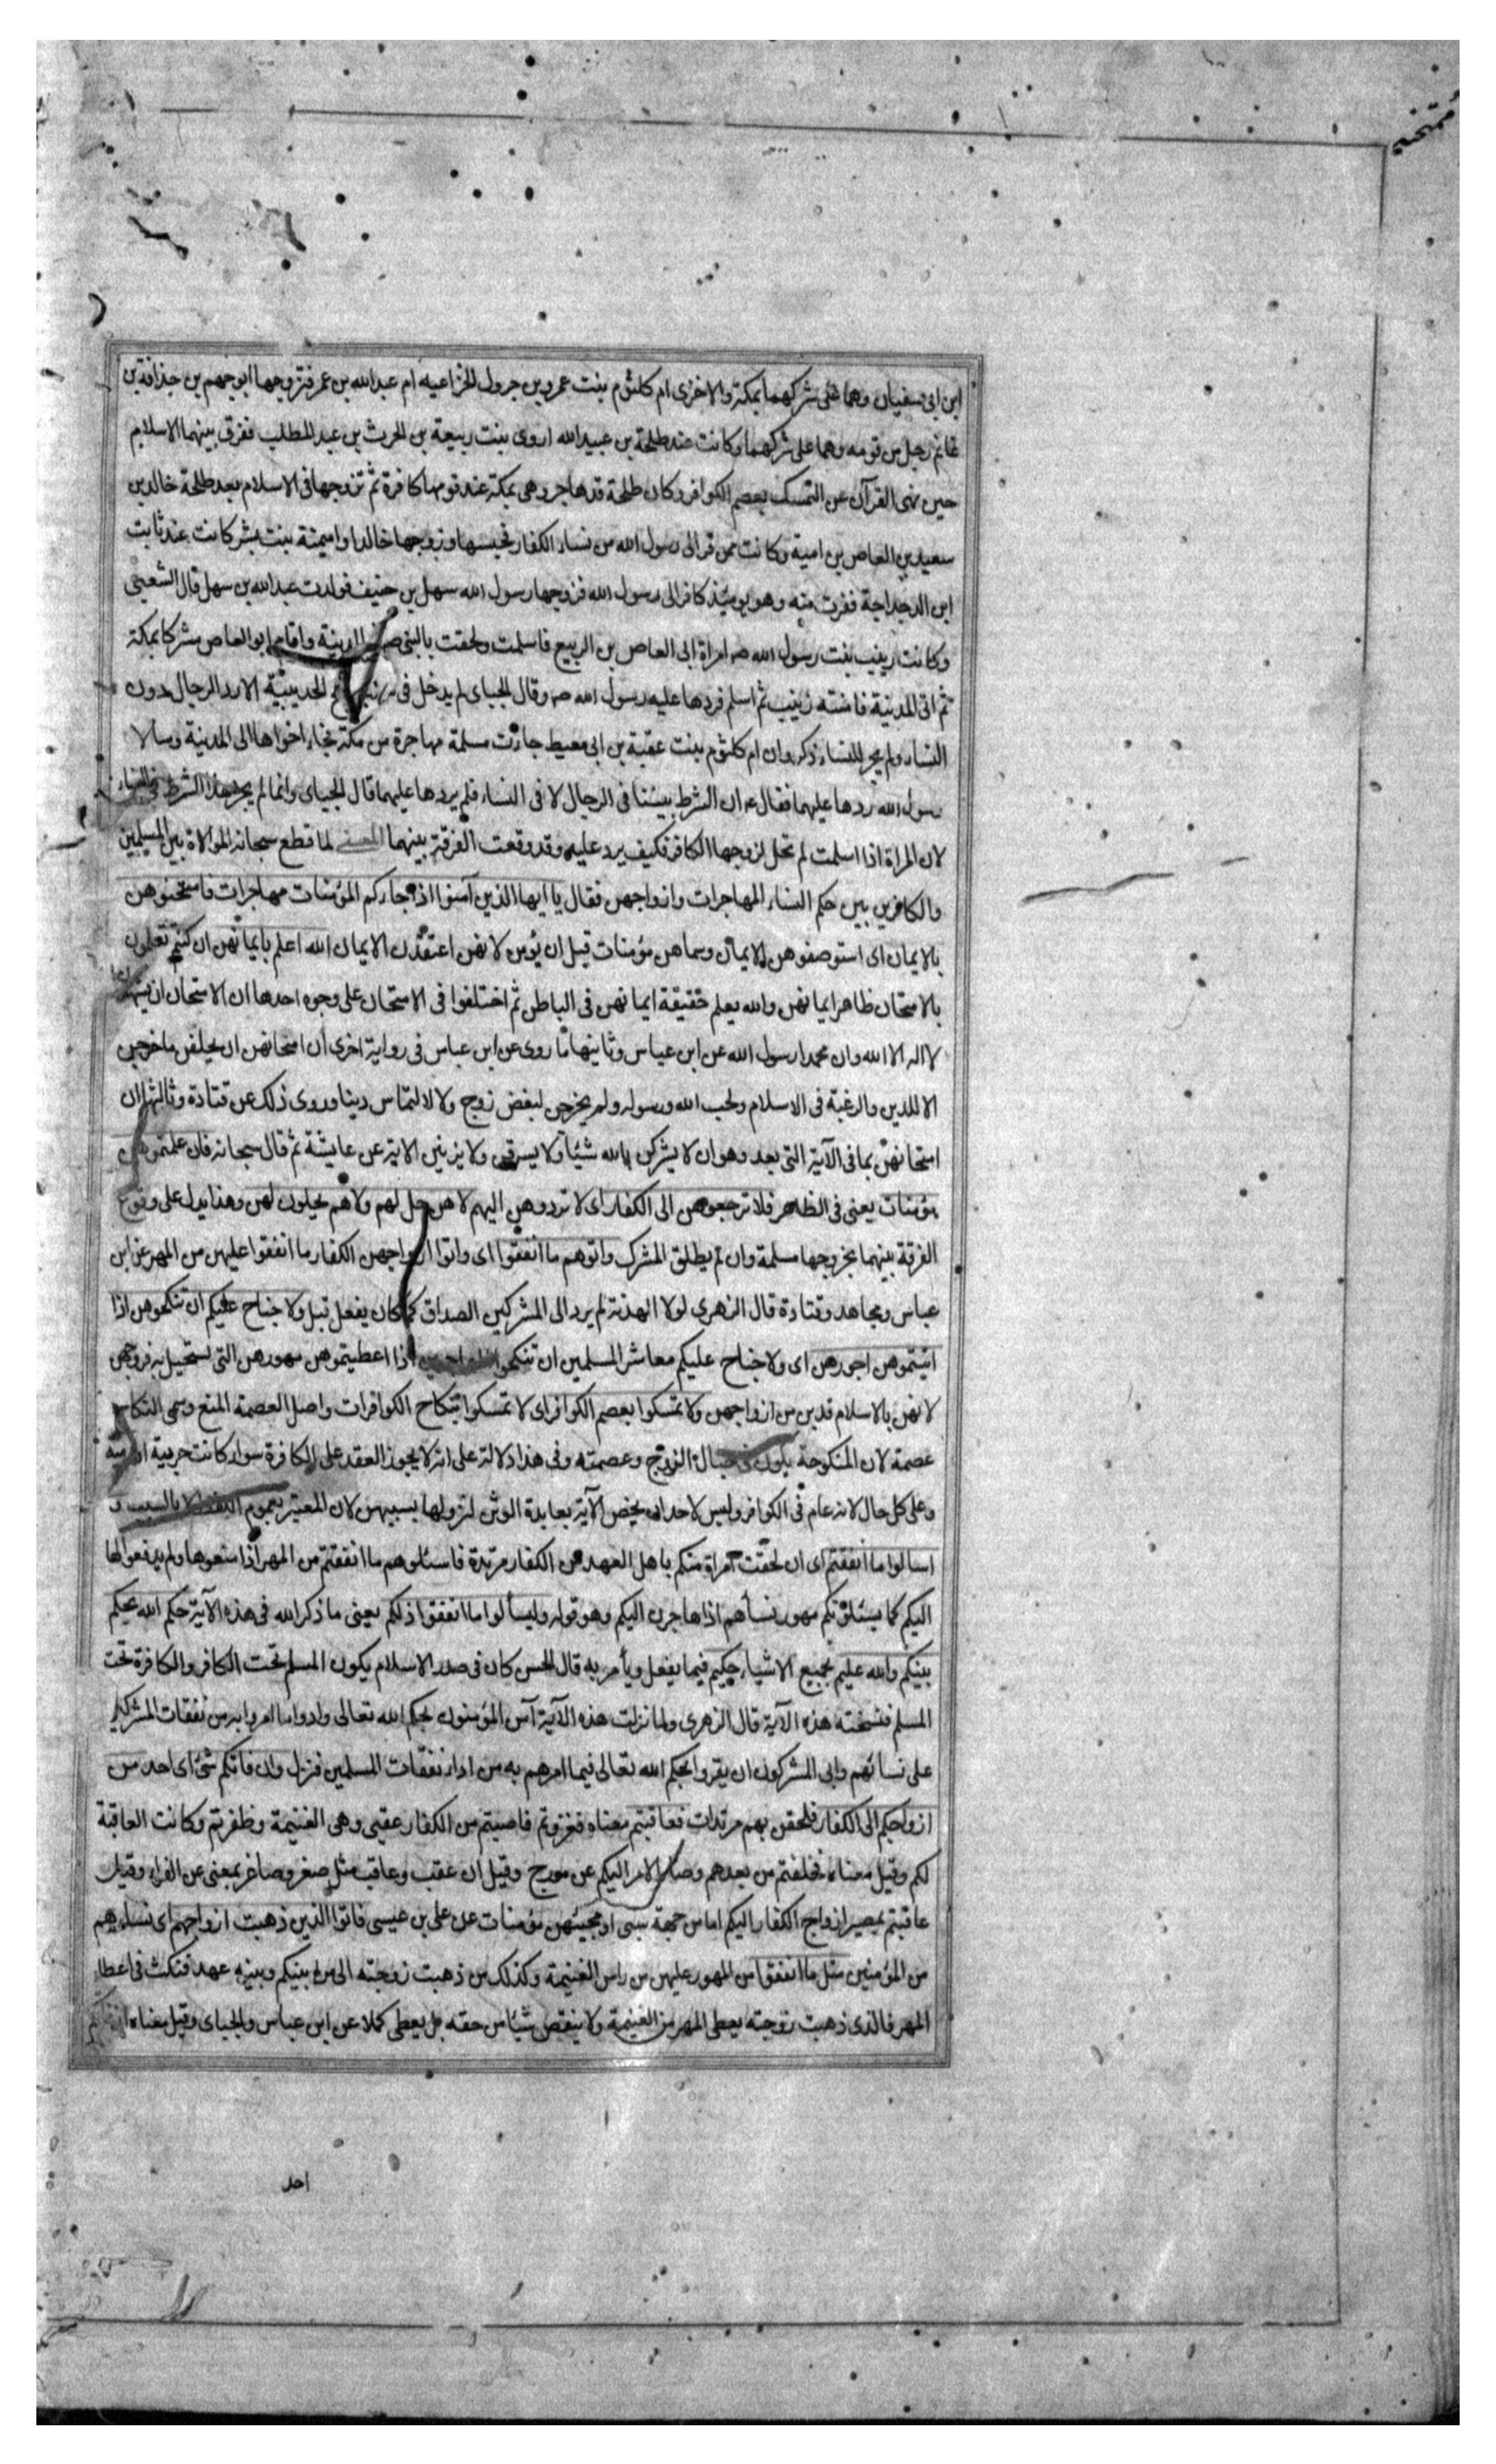 ممتحنه
ابن ابی سفیان وهما على شركهما بمكة والاخرى ام كلثوم بنت عمرو بن جرول الخزاعيه ام عبدالله بن عمر فتزوجها ابو جهم بن حذافة بن
غانم رجل من قومه وهما على شركهما وكانت عند طلحة بن عبيدالله اروى بنت ربيعة بن الحرث بن عبدالمطلب ففرق بينهما الاسلام
حين نهى القرآن عن التمسك بعصم الكوافر وكان طلحة قد هاجر وهى بمكة عند قومها كافرة ثم تزوجها فى الاسلام بعد طلحة خالد بن
سعيد بن العاص بن امية وكانت ممن فر الى رسول الله من نساء الكفار فحبسها وزوجها خالدا واميمة بنت بشر كانت عند ثابت
ابن الدحداحة ففرت منه وهو يومئذ كافر الى رسول الله فزوجها رسول الله سهل بن حنيف فولدت عبدالله بن سهل قال الشعبى
وكانت زينب بنت رسول الله ص امراة ابى العاص بن الربيع فاسلمت ولحقت بالنبى ص المدينة واقام ابو العاص مشركا بمكة
ثم اتى المدينة فامنته زينب ثم اسلم فردها عليه رسول الله ص وقال الجباى لم يدخل فى الحديبية الا رد الرجال دون
النساء ولم يجر للنساء ذكر وان ام كلثوم بنت عقبة بن ابى معيط جاءت مسلمة مهاجرة من مكة فجاء اخواها الى المدينة وسالا
رسول الله ردها عليهما فقال ع ان الشرط بيننا فى الرجال لا فى النساء فلم يردها عليهما قال الجباى وانما لم يجر هذا الشرط فى النساء
لان المراة اذا اسلمت لم تحل لزوجها الكافر فكيف يرد عليه وقد وقعت الفرقة بينهما المعنى لما قطع سبحانه الموالاة بين المسلمين
والكافرين بين حكم النساء المهاجرات وازواجهن فقال يا ايها الذين آمنوا اذا جاءكم المؤمنات مهاجرات فامتحنوهن
بالايمان اى استوصفوهن الايمان وسماهن مؤمنات قبل ان يؤمن لانهن اعتقدن الايمان الله اعلم بايمانهن ان كنتم تعلمون
بالامتحان ظاهر ايمانهن والله يعلم حقيقة ايمانهن فى الباطن ثم اختلفوا فى الامتحان على وجوه احدها ان الامتحان ان يشهدن
لا اله الا الله وان محمدا رسول الله عن ابن عباس وثانيها ما روى عن ابن عباس فى رواية اخرى ان امتحانهن ان يحلفن ما خرجن
الا للدين والرغبة فى الاسلام ولحب الله ورسوله ولم يخرجن لبغض زوج ولا لالتماس دينا وروى ذلك عن قتادة وثالثها ان
امتحانهن بما فى الآية التى بعد وهو ان لا يشركن بالله شيئا ولا يسرقن ولا يزنين الاية عن عايشة ثم قال سبحانه فان علمتموهن
مؤمنات يعنى فى الظاهر فلا ترجعوهن الى الكفار اى لا تردوهن اليهم لا هن حل لهم ولا هم يحلون لهن وهذا يدل على وقوع
الفرقة بينهما بخروجها مسلمة وان لم يطلق المشرك واتوهم ما انفقوا اى واتوا ازواجهن الكفار ما انفقوا عليهن من المهر عن ابن
عباس ومجاهد وقتادة قال الزهرى لولا الهدنة لم يرد الى المشركين الصداق كما كان يفعل قبل ولا جناح عليكم ان تنكحوهن اذا
اتيتموهن اجورهن اى ولا جناح عليكم معاشر المسلمين ان تنكحوا المهاجرات اذا اعطيتموهن مهورهن التى يستحيل به فروجهن
لانهن بالاسلام قد بن من ازواجهن ولا تمسكوا بعصم الكوافر اى لا تمسكوا بنكاح الكوافرات واصل العصمة المنع وسمى النكاح
عصمة لان المنكوحة يكون فى حبال الزوج وعصمته وفى هذا دلالة على انه لا يجوز العقد على الكافرة سواء كانت حربية او ذمية
وعلى كل حال لانه عام فى الكوافر وليس لاحد ان يخص الآية بعابدة الوثن لنزولها بسببهن لان المعتبر بعموم اللفظ لا بالسبب و
اسالوا ما انفقتم اى ان لحقت امراة منكم باهل العهد من الكفار مرتدة فاسئلوهم ما انفقتم من المهر اذا منعوها ولم يدفعوها
اليكم كما يسئلونكم مهور نسائهم اذا هاجرن اليكم وهو قوله وليسألوا ما انفقوا ذلكم يعنى ما ذكر الله فى هذه الآية حكم الله يحكم
بينكم والله عليم بجميع الاشياء حكيم فيما يفعل ويأمر به قال الحسن كان فى صدر الاسلام يكون المسلم تحت الكافر والكافرة تحت
المسلم فنسخته هذه الآية قال الزهرى ولما نزلت هذه الآية آمن المؤمنون بحكم الله تعالى وادوا ما امروا به من نفقات المشركين
على نسائهم وابى المشركون ان يقروا بحكم الله تعالى فيما امرهم به من اداء نفقات المسلمين فنزل وان فاتكم شئ اى احد من
ازواجكم الى الكفار فلحقن بهم مرتدات فعاقبتم معناه فغزوتم فاصبتم من الكفار عقبى وهى الغنيمة وظفرتم وكانت العاقبة
لكم وقيل معناه فخلفتم من بعدهم وصار الامر اليكم عن مورج وقيل ان عقب وعاقب مثل صغر وصاغر بمعنى عن الفراء وقيل
عاقبتم بمصير ازواج الكفار اليكم اما من جهة سبى او مجيئهن مؤمنات عن على بن عيسى فاتوا الذين ذهبت ازواجهم اى نساءهم
من المؤمنين مثل ما انفقوا من المهور عليهن من راس الغنيمة وكذلك من ذهبت زوجته الى من بينكم وبينه عهد فنكث فى اعطاء
المهر فالذى ذهبت زوجته يعطى المهر من الغنيمة ولا ينقص شيئا من حقه بل يعطى كملا عن ابن عباس والجباى وقيل معناه
احد